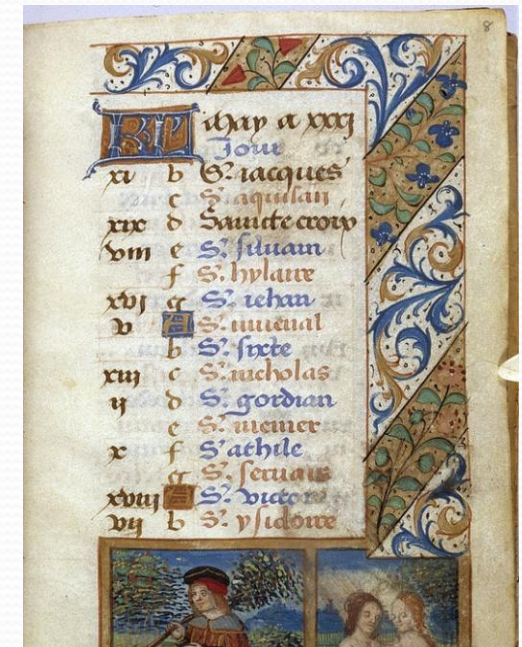 8
KL May a xxxj
Jour
xi b S. iacques
c S. aquisan
xix d Saincte croix
viii e S. siluain
f S. hylaire
xvj g S. iehan
v A S. iuuenal
b S. sixte
xiii c S. nicholas
ij d S. gordian
e S.
x f S. athile
g S. seruais
xviii A S. victor
vij b S. ysidoire